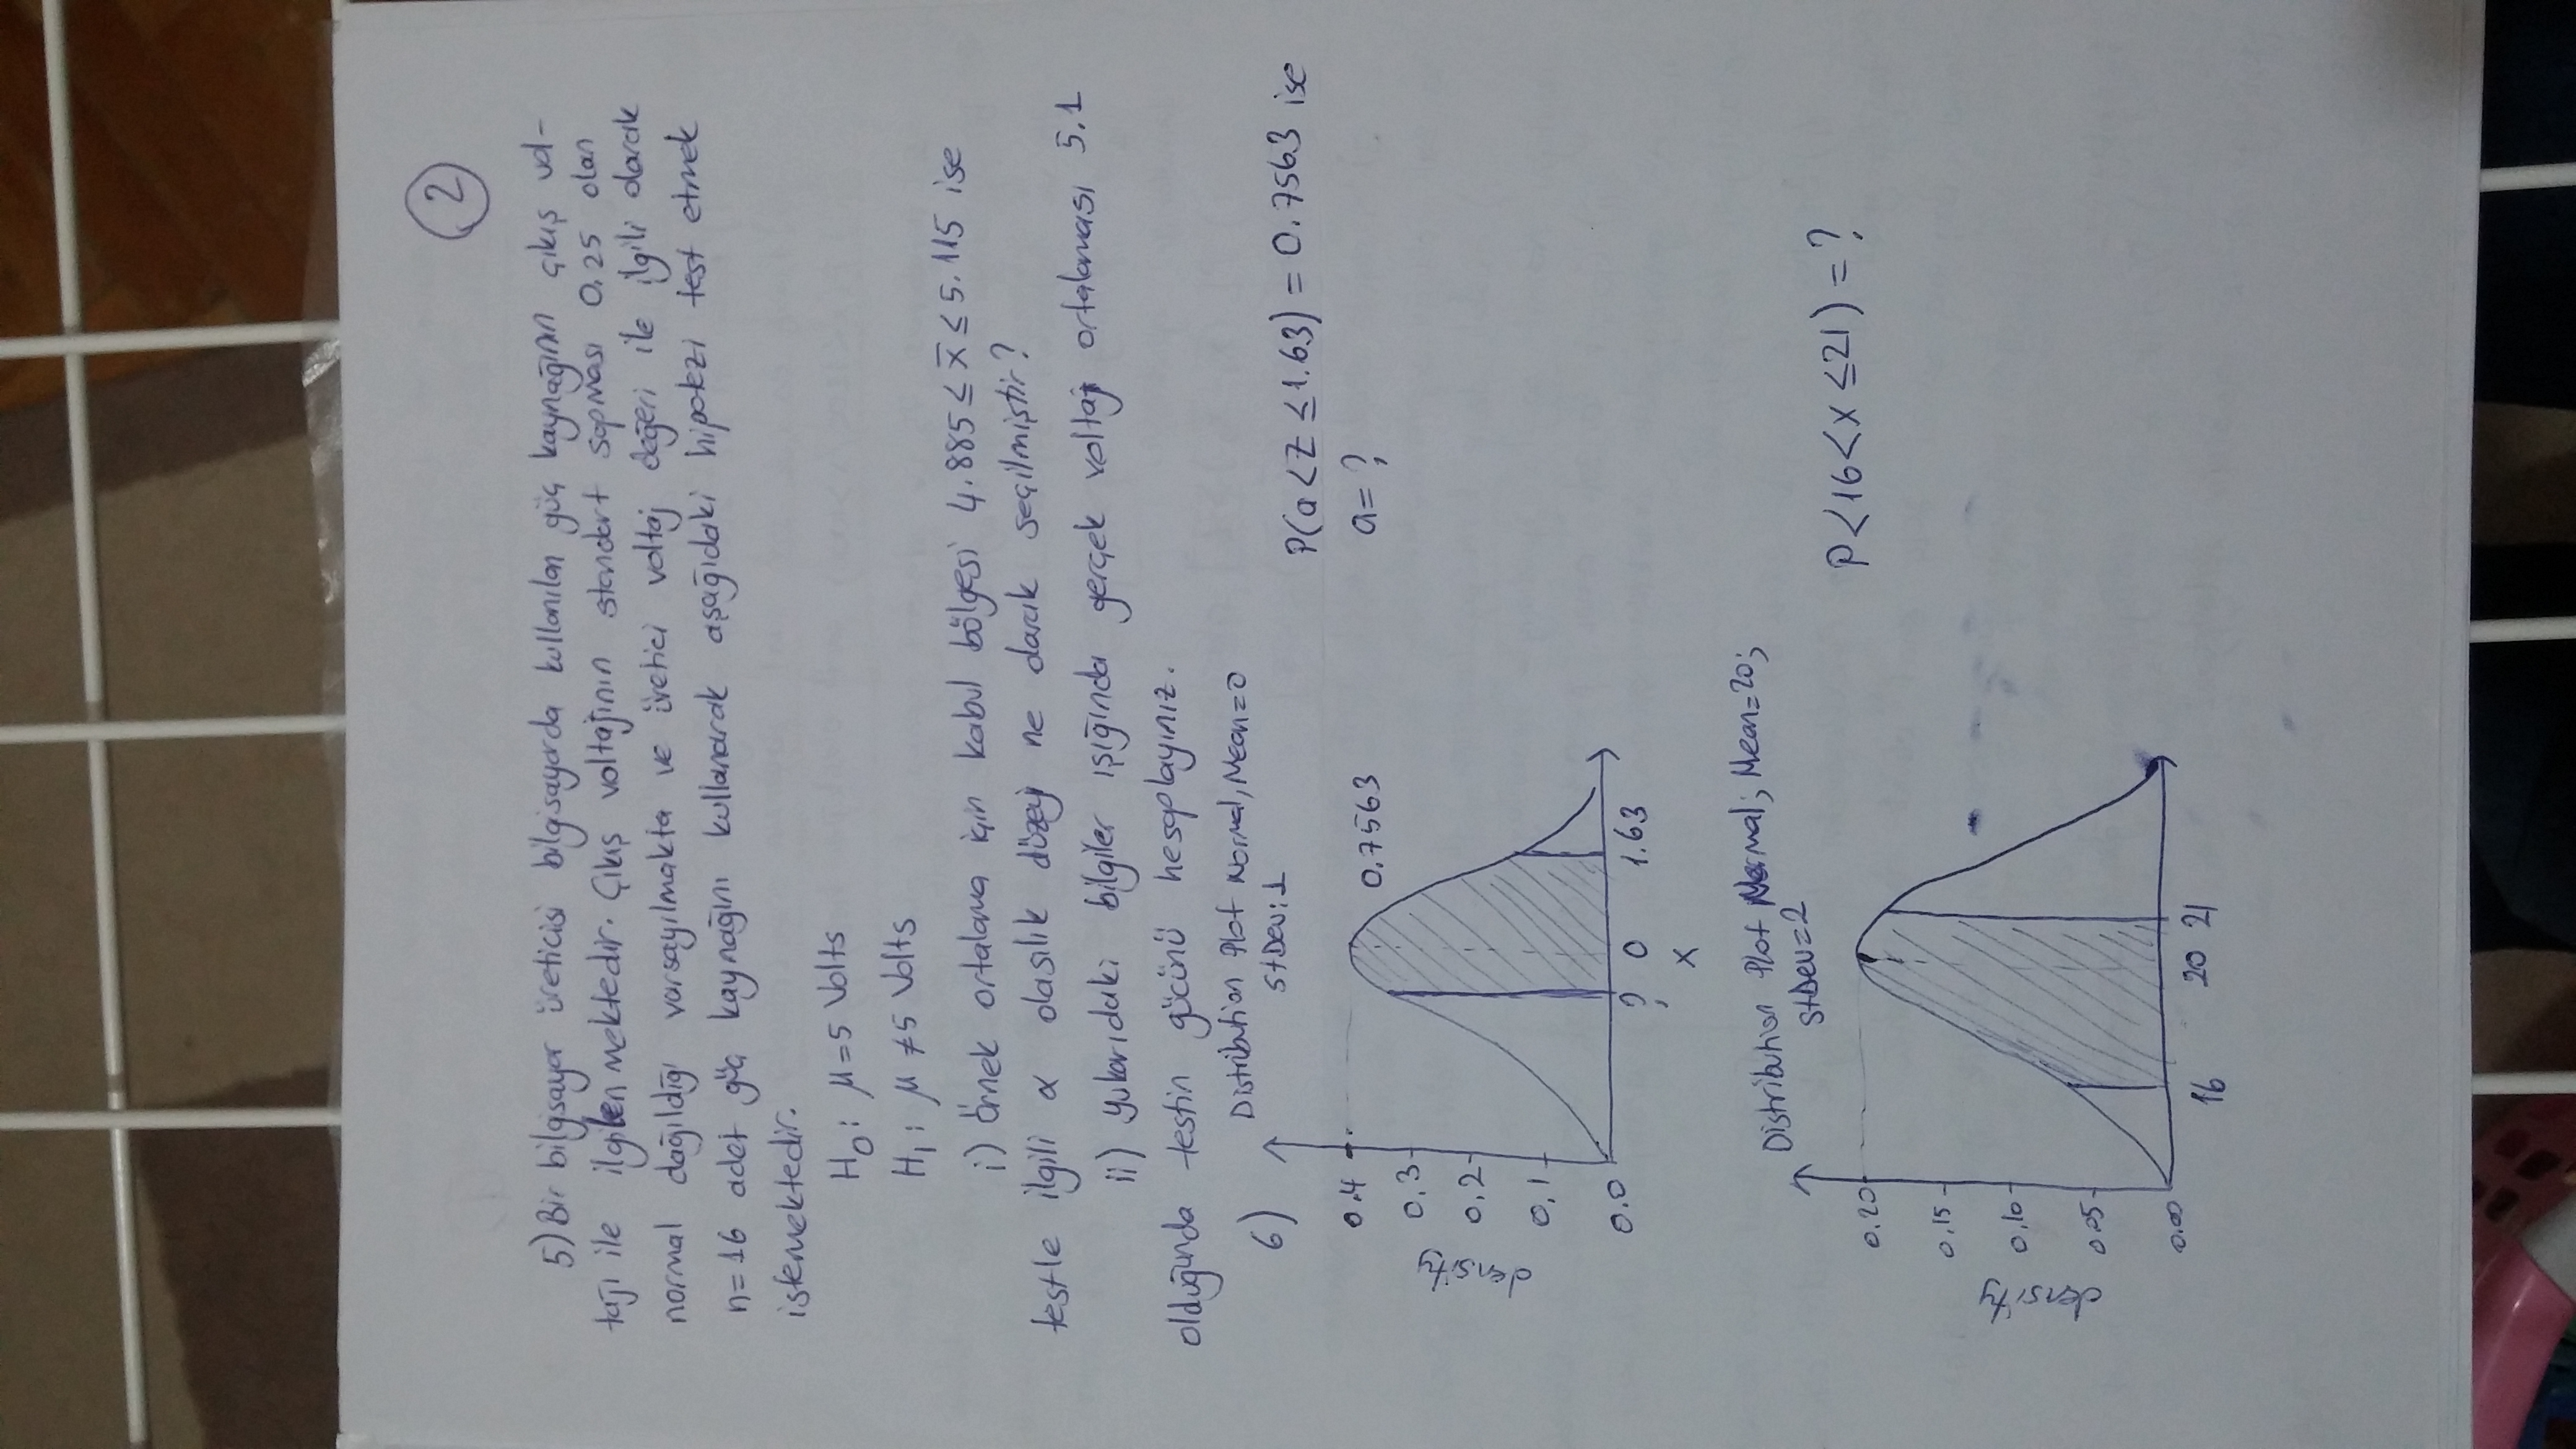 2
5) Bir bilgisayar üreticisi bilgisayarda kullanılan güç kaynağının çıkış vol-
tajı ile ilgilenmektedir. Çıkış voltajının standart sapması 0.25 olan
normal dağıldığı varsayılmakta ve üretici voltaj değeri ile ilgili olarak
n=16 adet güç kaynağını kullanarak aşağıdaki hipotezi test etmek
istemektedir.
H₀: μ=5 Volts
H₁: μ≠5 Volts
i) Örnek ortalama için kabul bölgesi 4.885≤x̄≤5.115 ise
testle ilgili α olasılık düzeyi ne olarak seçilmiştir?
ii) Yukarıdaki bilgiler ışığında gerçek voltaj ortalaması 5.1
olduğunda testin gücünü hesaplayınız.
6) Distribution Plot Normal, Mean=0
StDev:1
P(a<Z≤1.63) = 0.7563 ise
a=?
0.4
0.7563
0.3
0.2
0.1
0.0
density
? 0 1.63
x
Distribution Plot Normal; Mean=20;
StDev=2
P<16<x≤21) = ?
0.20
0.15
0.10
0.05
0.00
density
16 20 21